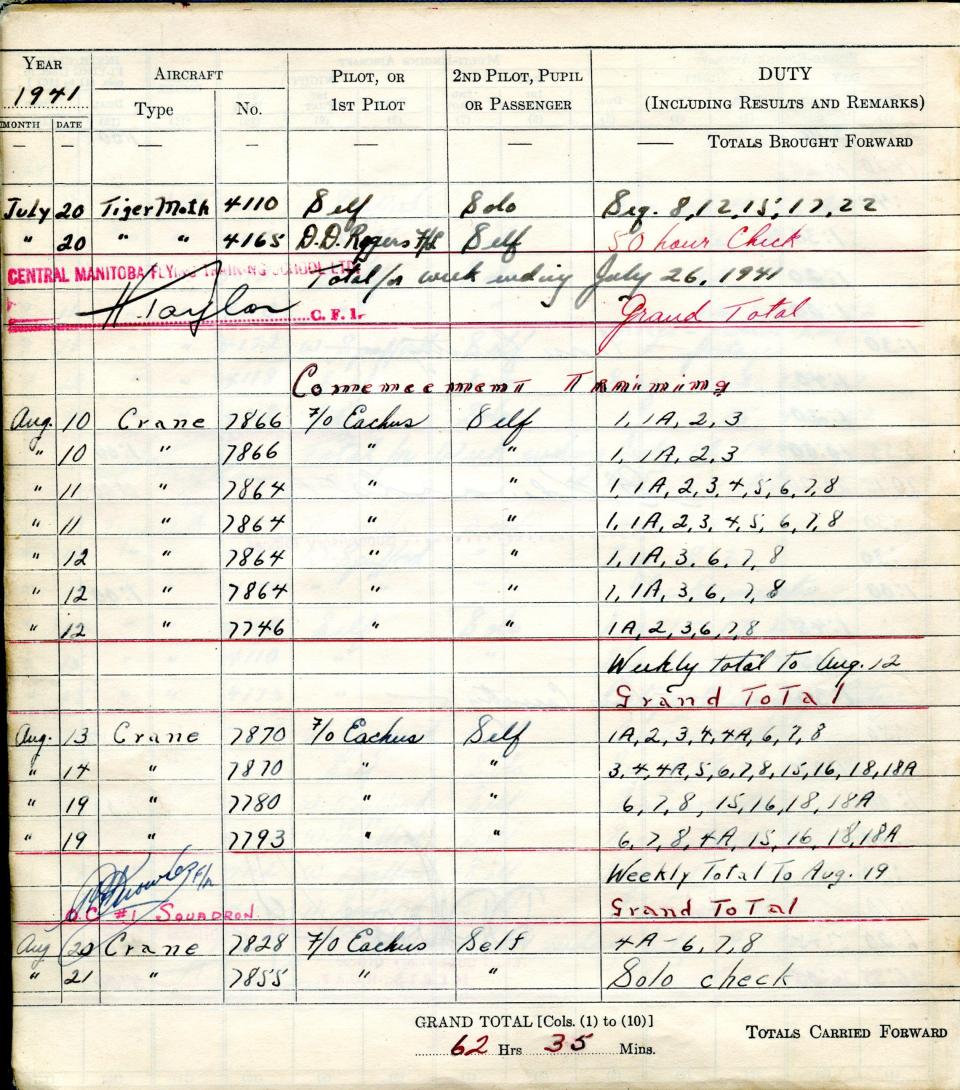 YEAR AIRCRAFT PILOT, OR 2ND PILOT, PUPIL DUTY
1941 Type No. 1ST PILOT OR PASSENGER (INCLUDING RESULTS AND REMARKS)
MONTH DATE
— — — — — — — TOTALS BROUGHT FORWARD
July 20 Tiger Moth 4110 Self Solo Seq. 8, 12, 15, 17, 22
" 20 " " 4165 D.D. Rogers F/L Self 50 hour Check
CENTRAL MANITOBA FLYING TRAINING SCHOOL LTD. Total for week ending July 26, 1941
H. Taylor C. F. I. Grand Total
Comemcement Training
Aug. 10 Crane 7866 F/O Eachus Self 1, 1A, 2, 3
" 10 " 7866 " " 1, 1A, 2, 3
" 11 " 7864 " " 1, 1A, 2, 3, 4, 5, 6, 7, 8
" 11 " 7864 " " 1, 1A, 2, 3, 4, 5, 6, 7, 8
" 12 " 7864 " " 1, 1A, 3, 6, 7, 8
" 12 " 7864 " " 1, 1A, 3, 6, 7, 8
" 12 " 7746 " " 1A, 2, 3, 6, 7, 8
Weekly total To Aug. 12
Grand Total
Aug. 13 Crane 7870 F/O Eachus Self 1A, 2, 3, 4, 4A, 6, 7, 8
" 14 " 7870 " " 3, 4, 4A, 5, 6, 7, 8, 15, 16, 18, 18A
" 19 " 7780 " " 6, 7, 8, 15, 16, 18, 18A
" 19 " 7793 " " 6, 7, 8, 4A, 15, 16, 18, 18A
Knowles F/L Weekly Total To Aug. 19
O.C #1 SQUADRON. Grand Total
Aug 20 Crane 7828 F/O Eachus Self 4A - 6, 7, 8
" 21 " 7855 " " Solo check
GRAND TOTAL [Cols. (1) to (10)] TOTALS CARRIED FORWARD
62 Hrs 35 Mins.